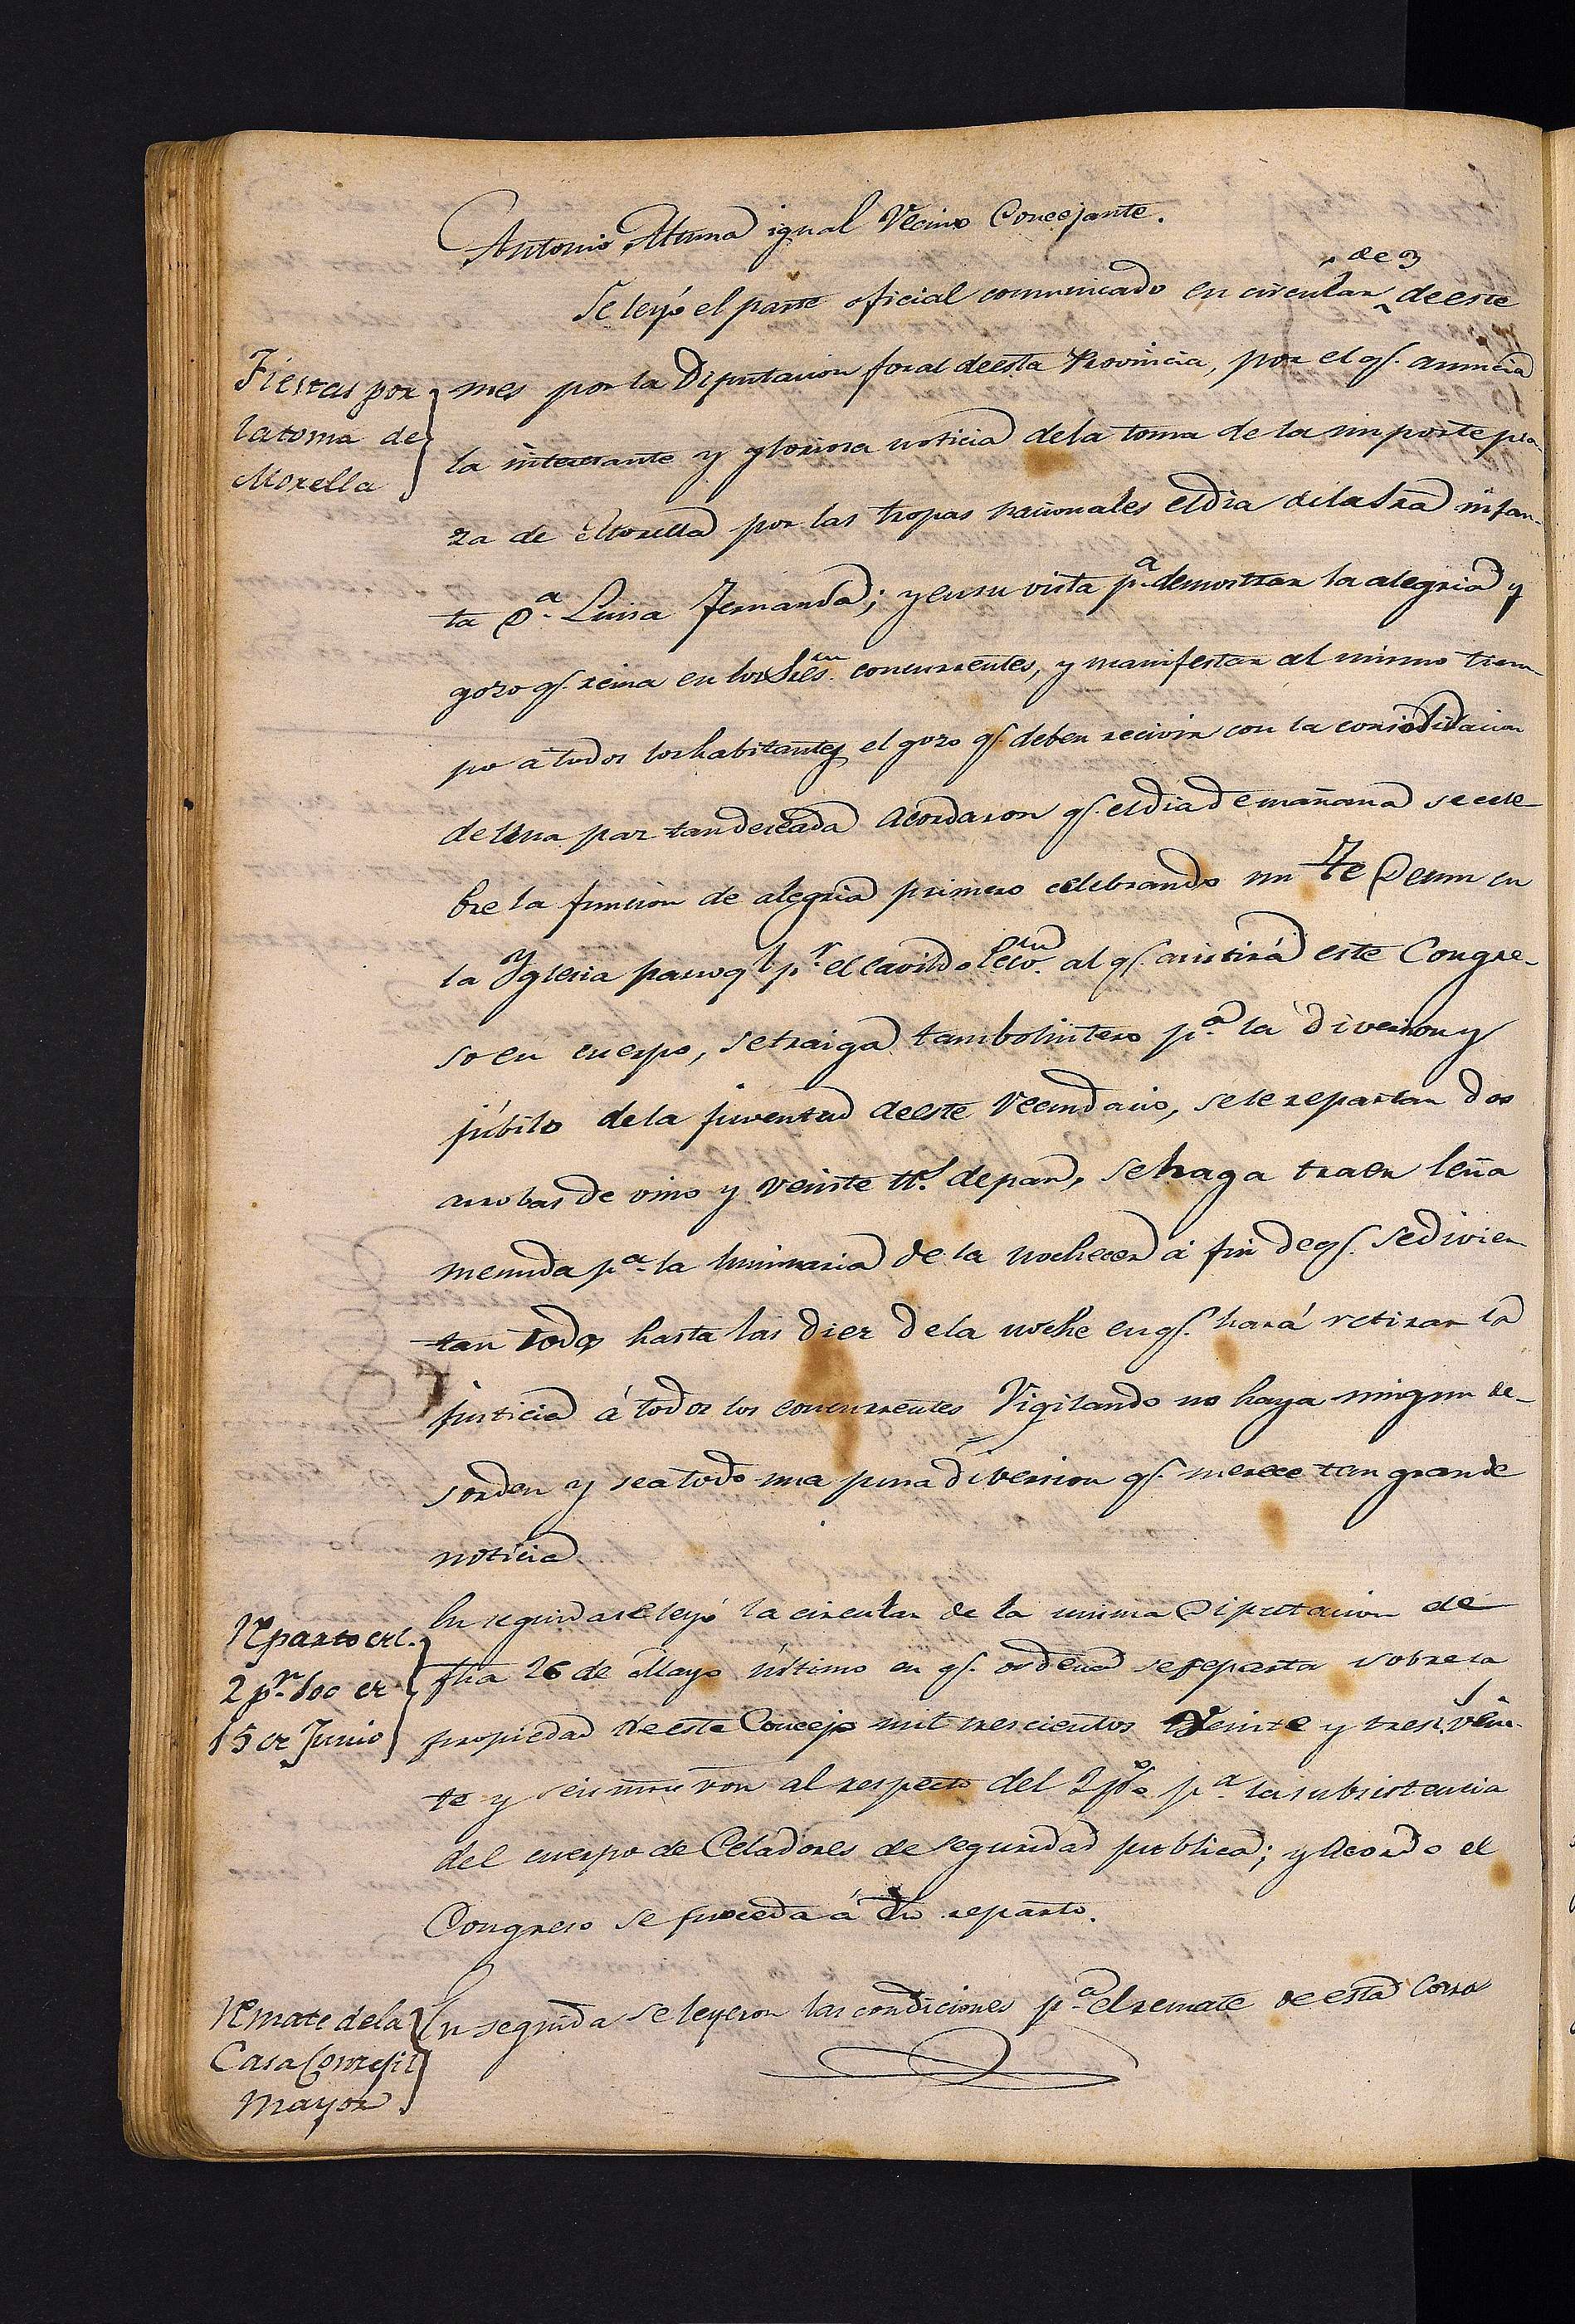 Antonio Altuna igual Vecino Concejante.
Se leyó el parte oficial comunicado en circular de 3 de este
Fiestas por
la toma de
Morella
mes por la Diputacion foral de esta Provincia, por el qe. anuncia
la interesante y gloriosa noticia de la toma de la importe pla-
za de Morella por las tropas nacionales el dia de la Sra infan-
ta Da. Luisa Fernanda; y en su vista pa. demostrar la alegria y
gozo qe. reina en los Sres. concurrentes, y manifestar al mismo tiem
po a todos los habitantes el gozo qe. deben recivir con la consolidacion
de una paz tan deseada Acordaron qe. el dia de mañana se cele
bre la funcion de alegria primero celebrando un Te Deum en
la Yglesia parroql pr. el cavildo Ecco. al qe. asistirá este Congre-
so en cuerpo, se traiga tambolintero pa. la diversion y
júbilo de la juventud de este Vecindario, se le repartan dos
arrobas de vino y veinte lls. de pan, se haga traer leña
menuda pa. la luminaria de la nochecer á fin de qe. se divier
tan todos hasta las diez de la noche en qe. hará retirar la
justicia á todos los concurrentes Vigilando no haya ningun de-
sorden y sea todo una pura diversion qe. merece tan grande
noticia
Reparto del
2 pr. 100 de
15 de Junio
En seguida se leyó la circular de la misma Diputacion de
fha 26 de Mayo último en qe. ordena se reparta sobre la
propiedad de este Concejo mil trescientos veinte y tres rs. vein-
te y seis mrs von al respecto del 2 po pa. la subsistencia
del cuerpo de Celadores de seguridad publica; y Acordo el
Congreso se proceda á dho reparto.
Remate de la
Casa Concejil
Mayor
En seguida se leyeron las condiciones pa. el remate de esta Casa